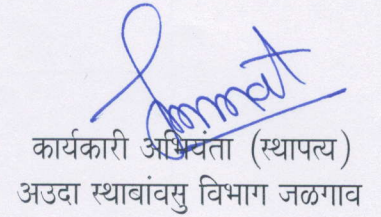 कार्यकारी अभियंता (स्थापत्य)
अउदा स्थाबांवसु विभाग जळगाव